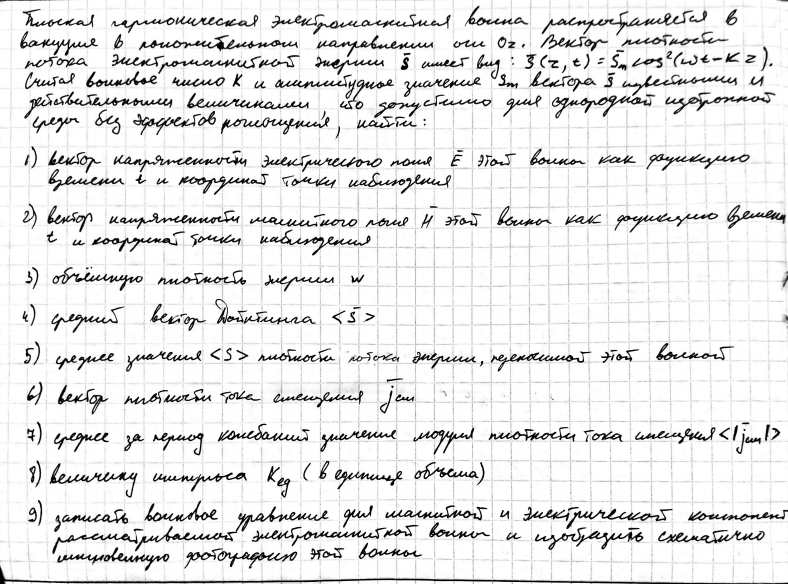 Плоская гармоническая электромагнитная волна распространяется в
вакууме в положительном направлении оси Oz. Вектор плотности
потока электромагнитной энергии S̄ имеет вид: S̄(z,t) = S̄m cos²(ωt-Kz).
Считая волновое число K и амплитудное значение Sm вектора S̄ известными и
действительными величинами, что допустимо для однородной изотропной
среды без эффектов поглощения, найти:
1) вектор напряженности электрического поля Ē этой волны как функцию
времени t и координат точки наблюдения
2) вектор напряженности магнитного поля H̄ этой волны как функцию времени
t и координат точки наблюдения
3) объёмную плотность энергии w
4) средний вектор Пойнтинга <S̄>
5) среднее значения <S> плотности потока энергии, переносимой этой волной
6) вектор плотности тока смещения j̄см
7) среднее за период колебаний значение модуля плотности тока смещения <|j̄см|>
8) величину импульса Kед (в единице объема)
9) записать волновое уравнение для магнитной и электрической компонент
рассматриваемой электромагнитной волны и изобразить схематично
мгновенную фотографию этой волны